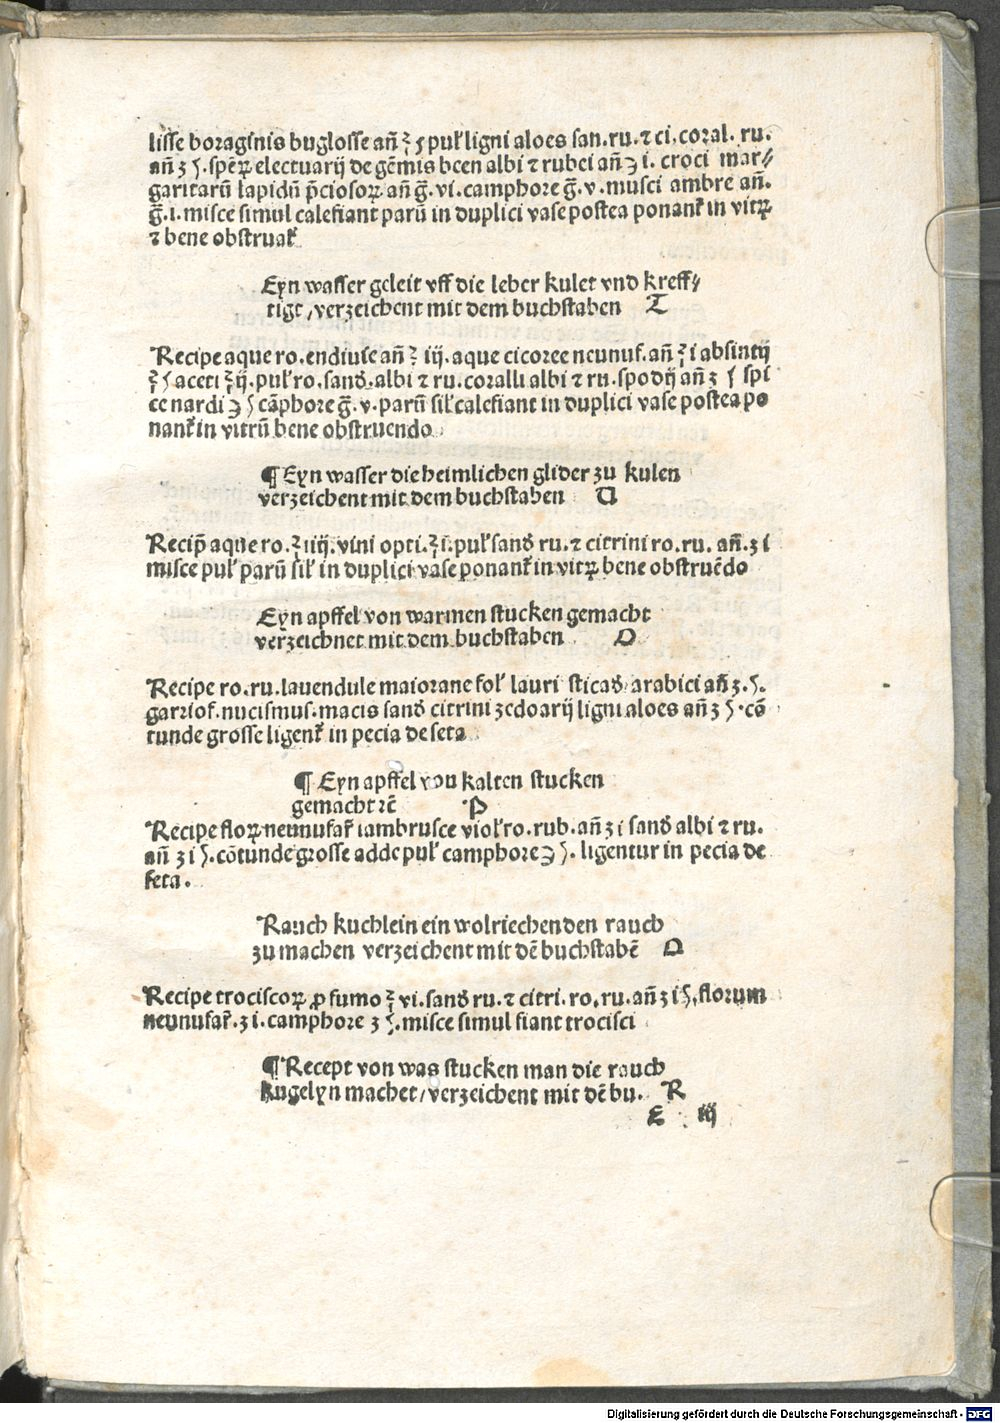 lisse boraginis buglosse an̄ ℥ ſ pul̓ ligni aloes san. ru. ⁊ ci. coral. ru.
an̄ ʒ ſ. sp̄eꝝ electuarij de gēmis been albi ⁊ rubei an̄ ℈ i. croci mar⸗
garitarū lapidū p̄ciosoꝝ an̄ g̅. vi. camphore g̅. v. musci ambre an̄.
g̅. i. misce simul calefiant parū in duplici vase postea ponant᷑ in vitꝝ
⁊ bene obstruat᷑
Eyn wasser geleit vff die leber kulet vnd kreff⸗
tigt / verzeichent mit dem buchstaben T
Recipe aque ro. endiuie an̄ ℥ iij. aque cicoree neunuf. an̄ ℥ i absintij
℥ ſ aceti ℥ ij. pul̓ ro. sand̓. albi ⁊ ru. coralli albi ⁊ ru. spodij an̄ ʒ ſ spi
ce nardi ℈ ſ cāphore g̅. v. parū sil̓ calefiant in duplici vase postea po
nant᷑ in vitrū bene obstruendo
¶ Eyn wasser die heimlichen glider zu kulen
verzeichent mit dem buchstaben U
Recip̄ aque ro. ℥ iiij. vini opti. ℥ i. pul̓ sand̓ ru. ⁊ citrini ro. ru. an̄. ʒ i
misce pul̓ parū sil̓ in duplici vase ponant᷑ in vitꝝ bene obstruēdo
Eyn apffel von warmen stucken gemacht
verzeichnet mit dem buchstaben O
Recipe ro. ru. lauendule maiorane fol̓ lauri sticad̓ arabici an̄ ʒ. ſ.
garriof. nucismus. macis sand̓ citrini zedoarij ligni aloes an̄ ʒ ſ. cō
tunde grosse ligent᷑ in pecia de seta
¶ Eyn apffel von kalten stucken
gemacht ꝛc̄ P
Recipe floꝝ neunufar̓ lambrusce viol̓ ro. rub. an̄ ʒ i sand̓ albi ⁊ ru.
an̄ ʒ i ſ. cōtunde grosse adde pul̓ camphore ℈ ſ. ligentur in pecia de
seta.
Rauch kuchlein ein wolriechenden rauch
zu machen verzeichent mit dē buchstabē Q
Recipe trociscoꝝ ꝓ fumo ℥ vi. sand̓ ru. ⁊ citri. ro. ru. an̄ ʒ i ſ. florum
neunufar̓. ʒ i. camphore ʒ ſ. misce simul fiant trocisci
¶ Recept von was stucken man die rauch
kugelyn machet / verzeichent mit dē bu. R
E iij
Digitalisierung gefördert durch die Deutsche Forschungsgemeinschaft - DFG